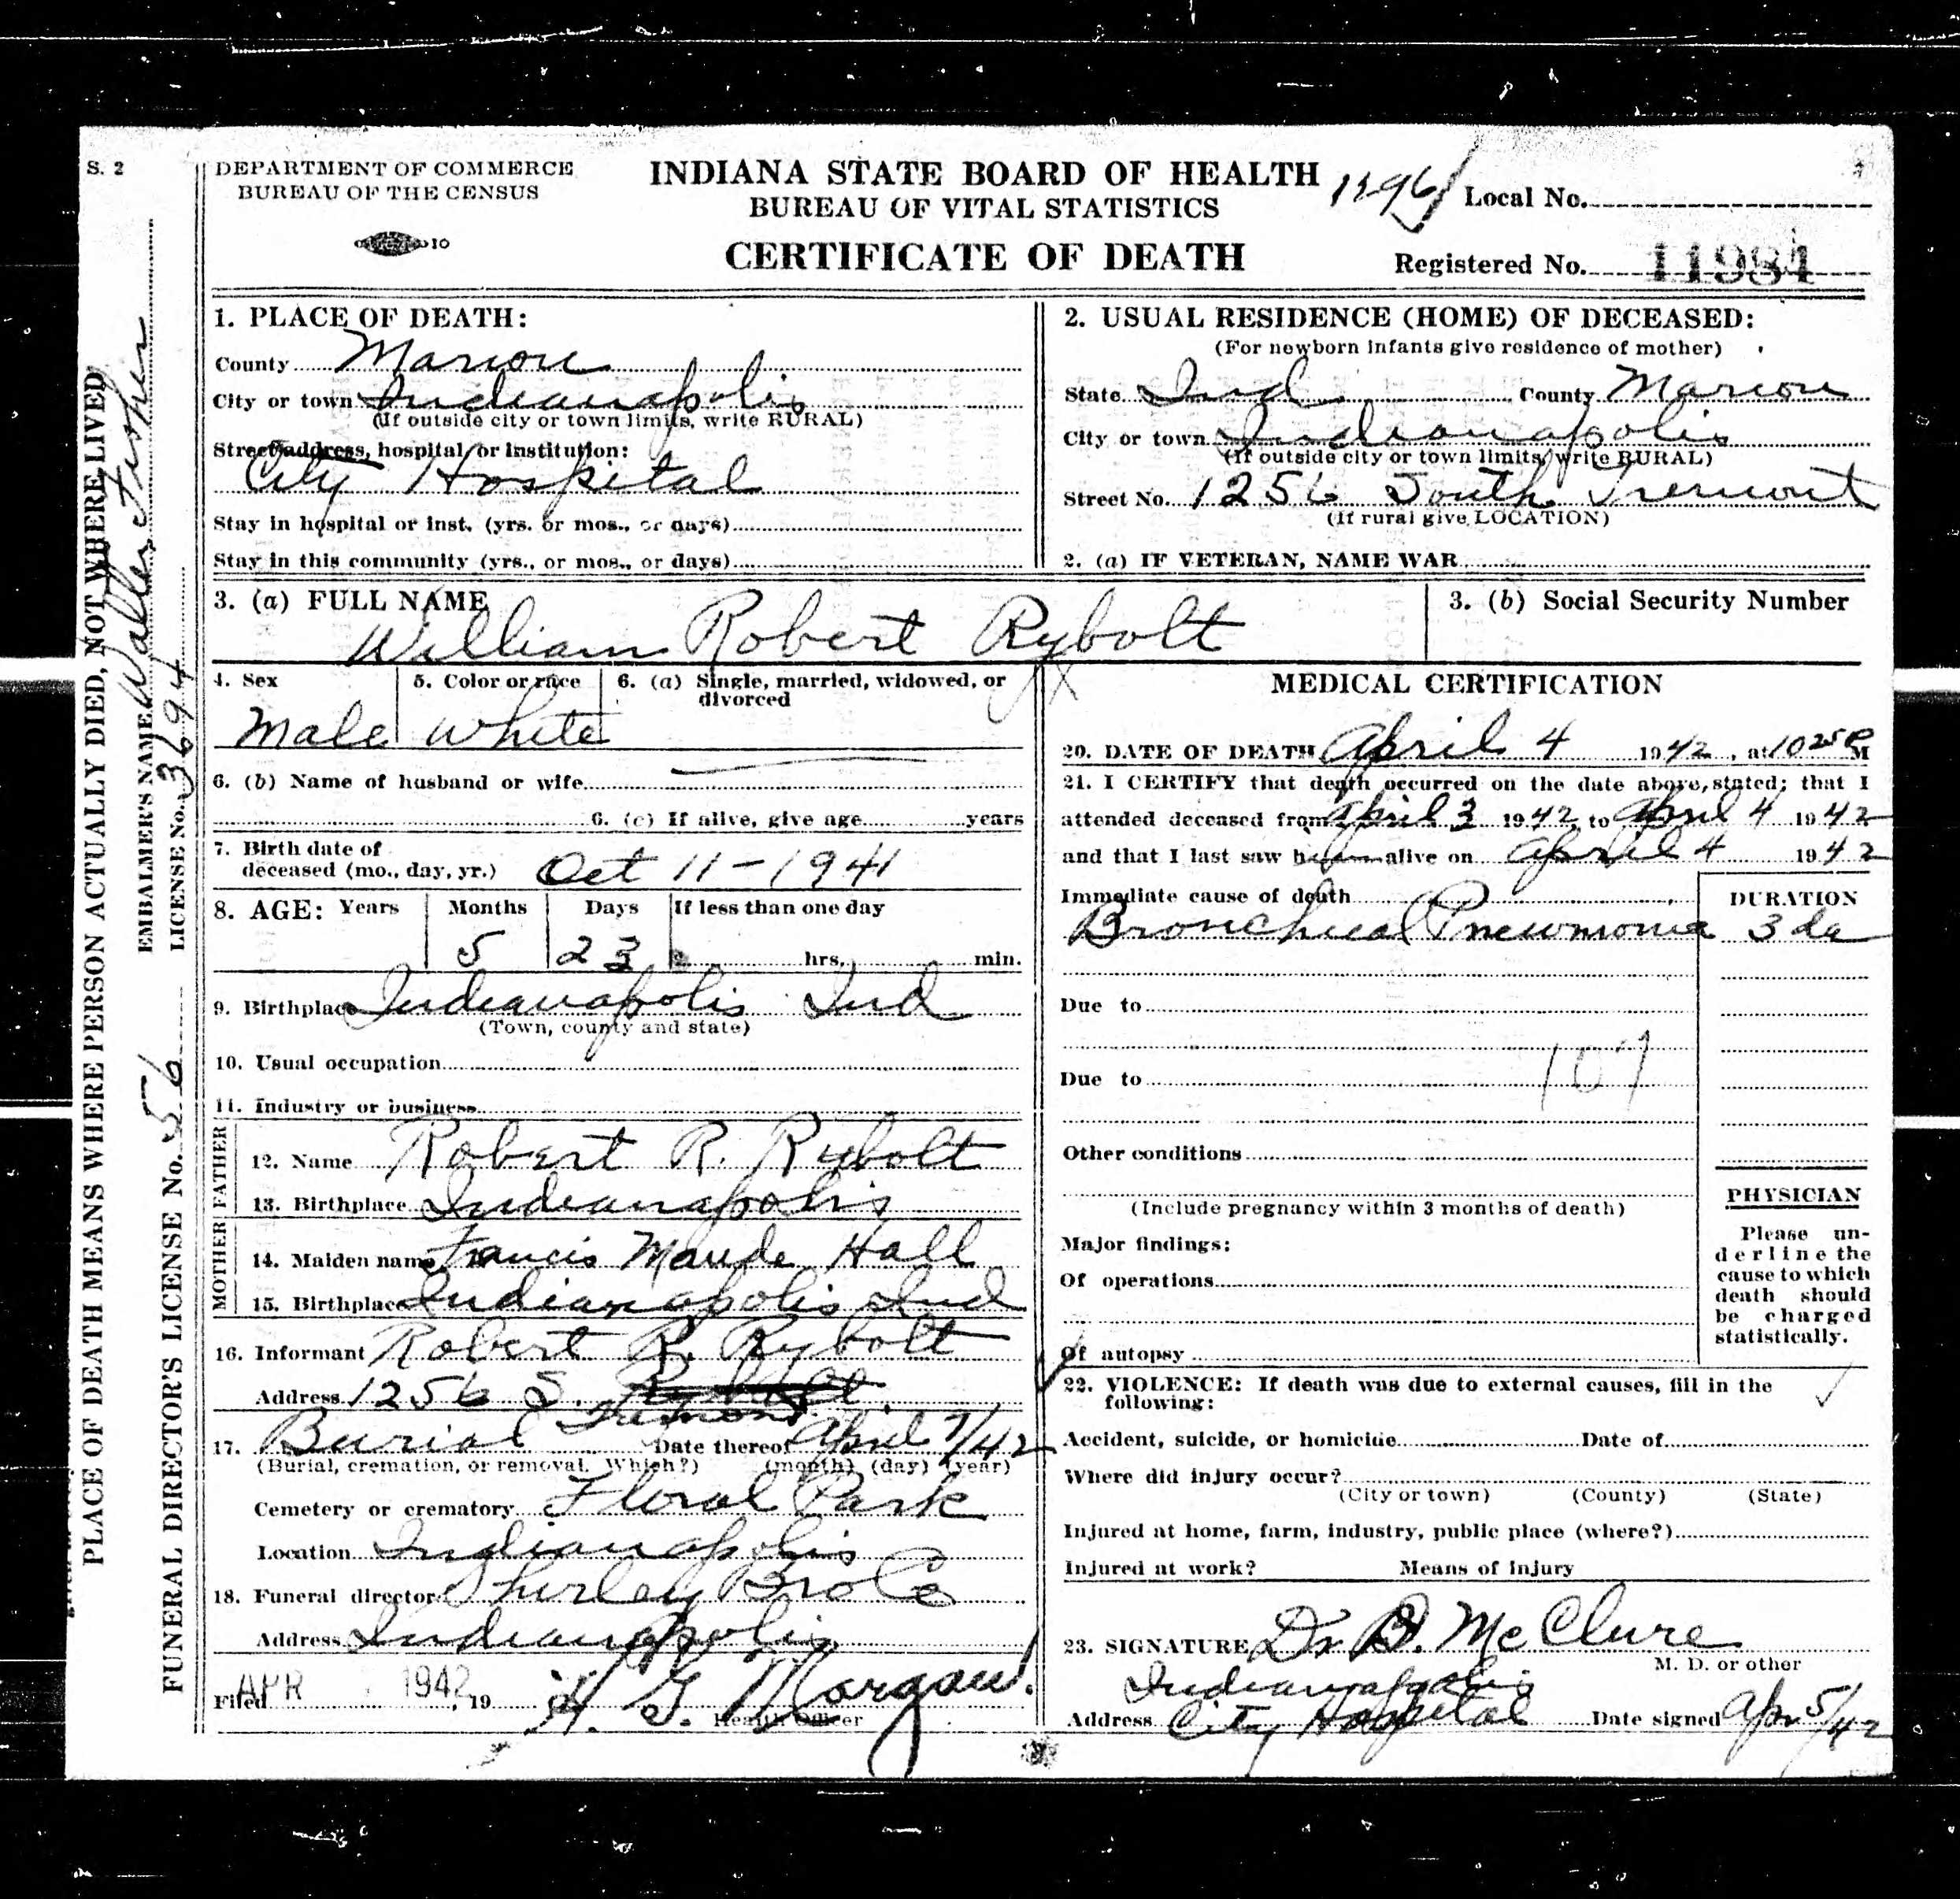 S. 2
DEPARTMENT OF COMMERCE
BUREAU OF THE CENSUS
10
INDIANA STATE BOARD OF HEALTH
BUREAU OF VITAL STATISTICS
CERTIFICATE OF DEATH
Local No.
Registered No. 11984
PLACE OF DEATH MEANS WHERE PERSON ACTUALLY DIED, NOT WHERE LIVED
EMBALMER'S NAME Walter Fisher
LICENSE No. 3694
FUNERAL DIRECTOR'S LICENSE No. 56
1. PLACE OF DEATH:
County Marion
City or town Indianapolis
(If outside city or town limits, write RURAL)
Street address, hospital or institution:
City Hospital
Stay in hospital or inst. (yrs. or mos., or days)
Stay in this community (yrs., or mos., or days)
2. USUAL RESIDENCE (HOME) OF DECEASED:
(For newborn infants give residence of mother)
State Ind County Marion
City or town Indianapolis
(If outside city or town limits, write RURAL)
Street No. 1256 South Tremont
(If rural give LOCATION)
2. (a) IF VETERAN, NAME WAR
3. (a) FULL NAME
William Robert Rybolt
3. (b) Social Security Number
4. Sex
Male
5. Color or race
White
6. (a) Single, married, widowed, or
divorced
6. (b) Name of husband or wife
6. (c) If alive, give age years
7. Birth date of
deceased (mo., day, yr.) Oct 11-1941
8. AGE: Years Months Days If less than one day
5 23 hrs. min.
9. Birthplace Indianapolis Ind
(Town, county and state)
10. Usual occupation
11. Industry or business
FATHER
12. Name Robert R. Rybolt
13. Birthplace Indianapolis
MOTHER
14. Maiden name Francis Maude Hall
15. Birthplace Indianapolis Ind
16. Informant Robert R. Rybolt
Address 1256 S. Rybolt
Tremont
17. Burial Date thereof April 7/42
(Burial, cremation, or removal. Which?) (month) (day) (year)
Cemetery or crematory Floral Park
Location Indianapolis
18. Funeral director Shirley Bro Co
Address Indianapolis
Filed APR 1942, 19 H. G. Morgan
Health Officer
MEDICAL CERTIFICATION
20. DATE OF DEATH April 4 1942, at 10 25 P M
21. I CERTIFY that death occurred on the date above stated; that I
attended deceased from April 3 1942 to April 4 1942
and that I last saw him alive on April 4 1942
Immediate cause of death
DURATION
Bronchial Pneumonia 3 da
Due to
107
Due to
Other conditions
(Include pregnancy within 3 months of death)
Major findings:
Of operations
Of autopsy
PHYSICIAN
Please un-
derline the
cause to which
death should
be charged
statistically.
22. VIOLENCE: If death was due to external causes, fill in the
following:
Accident, suicide, or homicide Date of
Where did injury occur?
(City or town) (County) (State)
Injured at home, farm, industry, public place (where?)
Injured at work? Means of injury
23. SIGNATURE Dr. B. McClure
M. D. or other
Indianapolis
Address City Hospital Date signed Apr 5/42